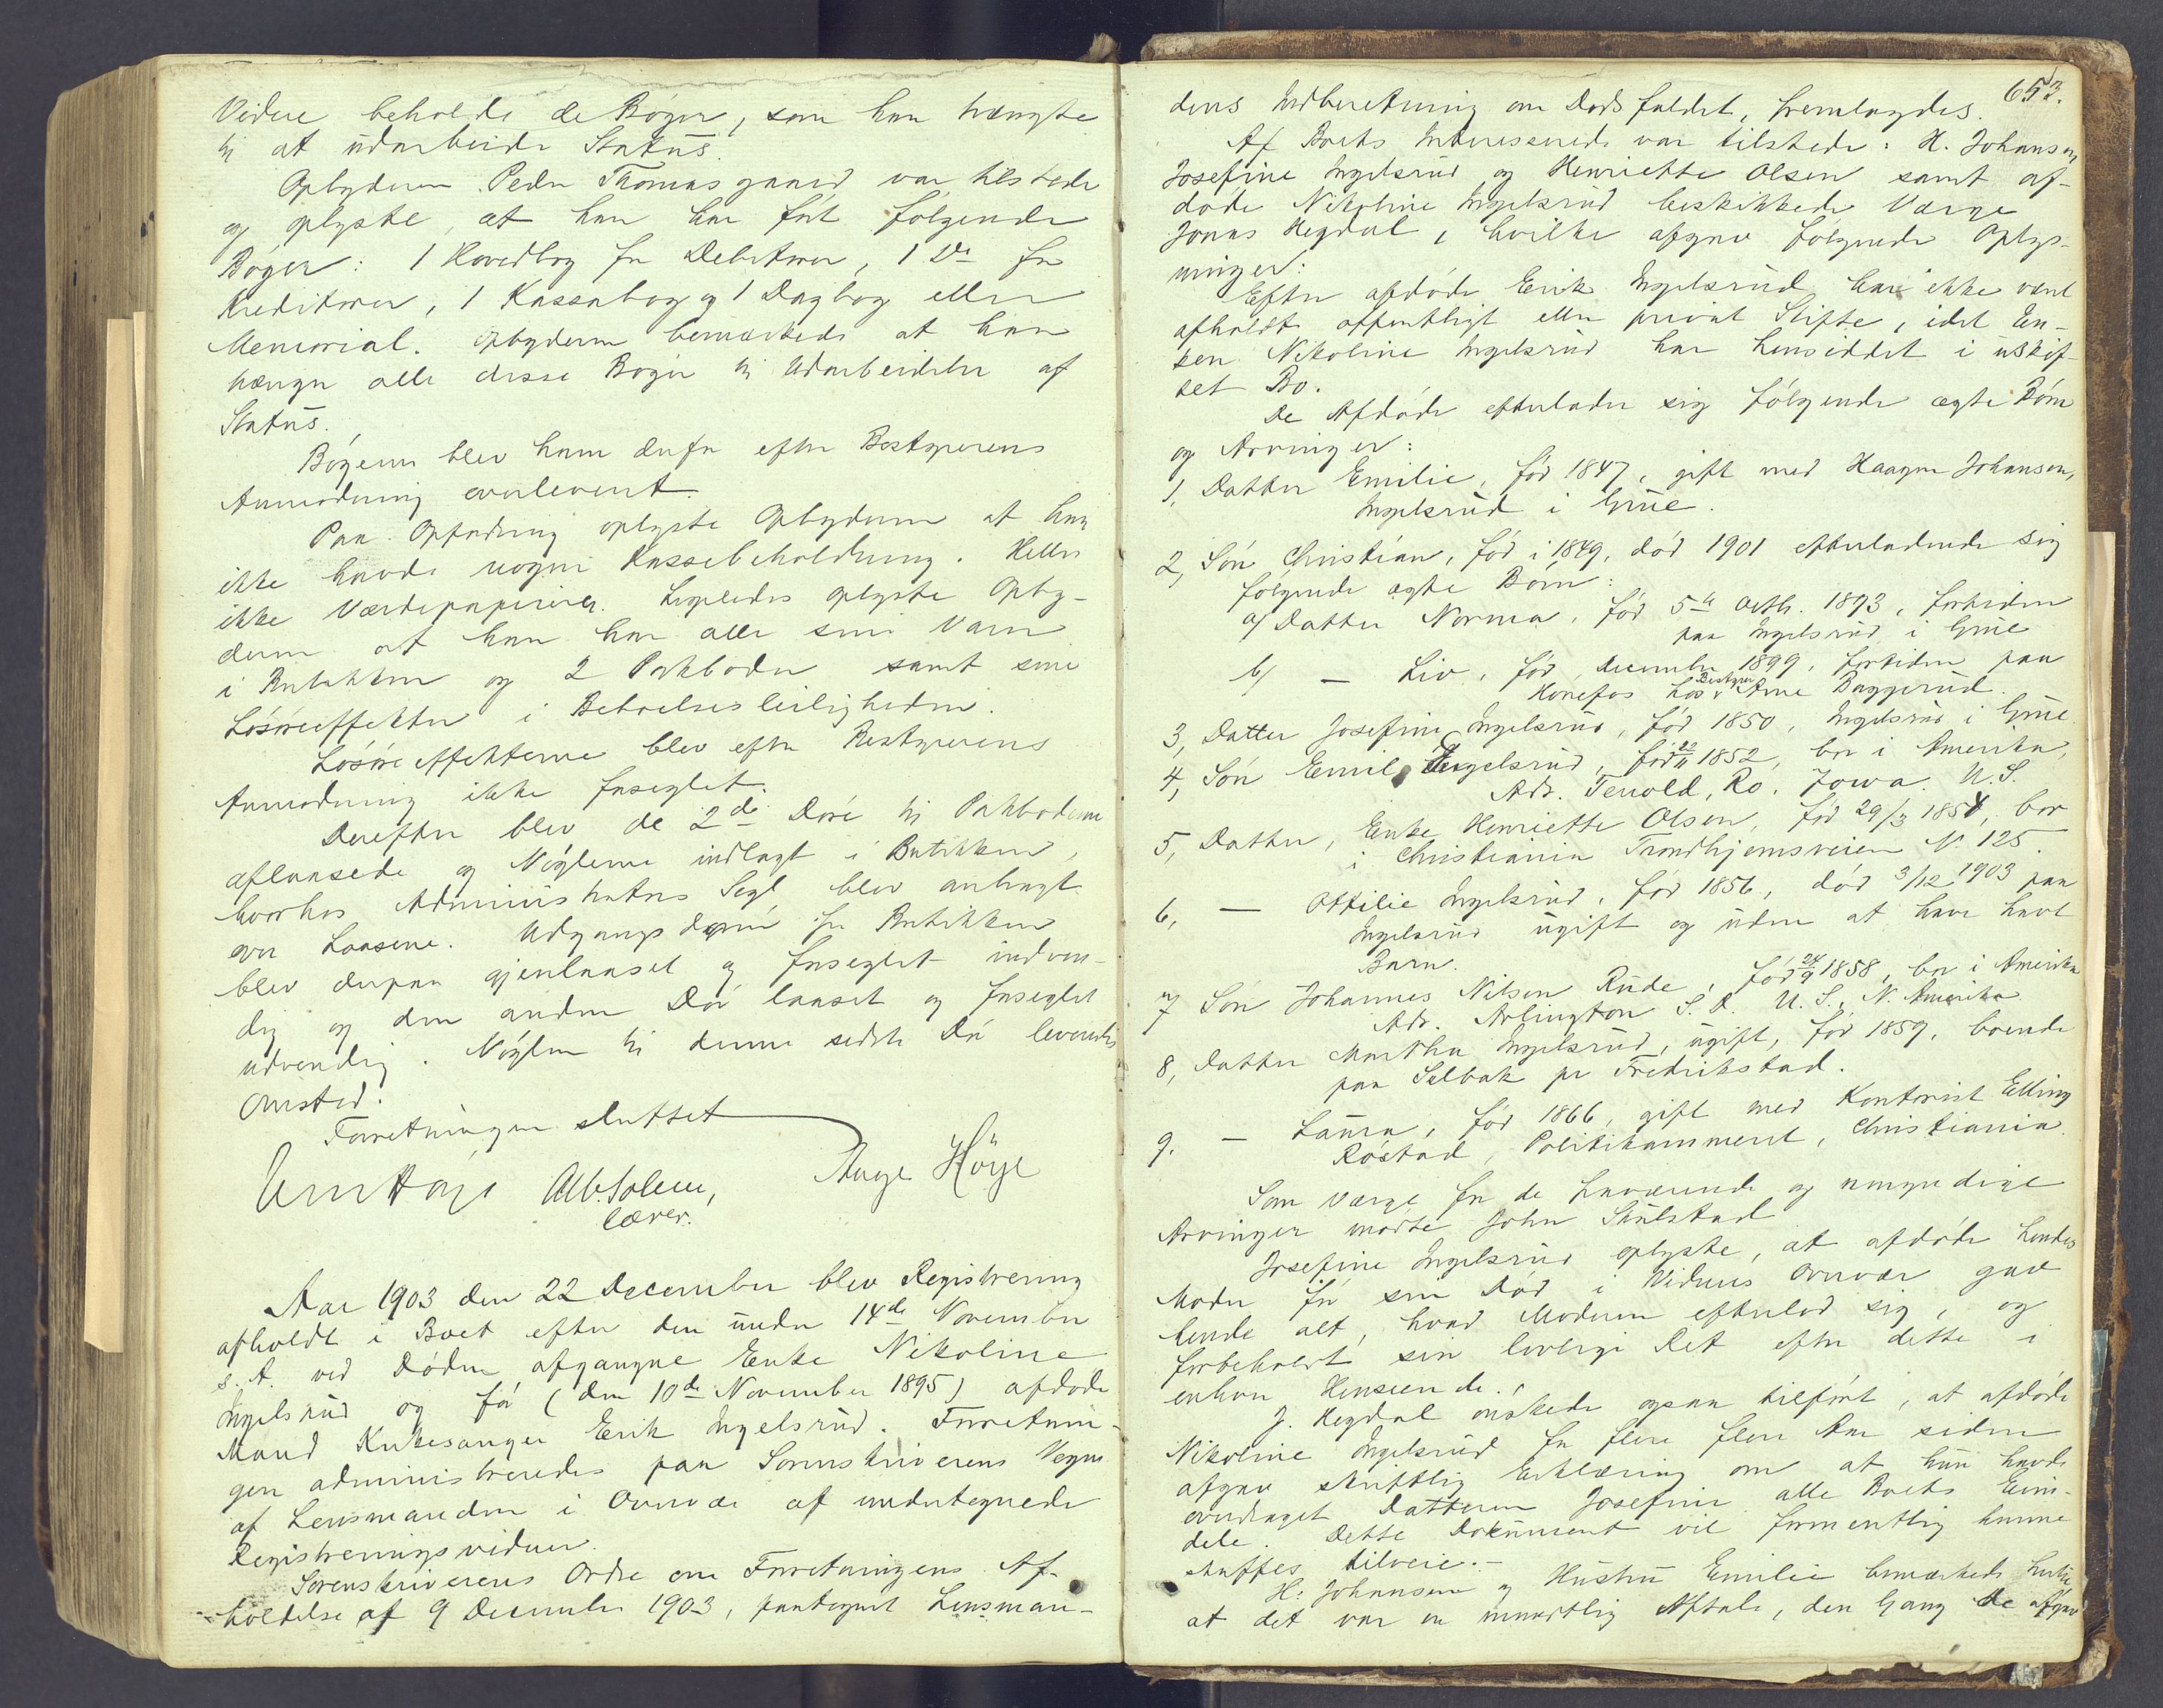 Videre beholde de Bøger, som han trængte
til at udarbeide Status.
Opbyderen Peder Thomasgaard var tilstede
og oplyste, at han har ført følgende
Bøger: 1 Hovedbog for Debitorer, 1 Do for
Kreditorer, 1 Kassabog og 1 Dagbog eller
Memorial. Opbyderen bemærkede at han
trænger alle disse Bøger til Udarbeidelse af
Status.
Bøgerne blev ham derfor efter Bestyrerens
Anmodning overleveret.
Paa Opfordring oplyste Opbyderen at han
ikke havde nogen Kassebeholdning. Heller
ikke Værdipapirer. Ligeledes oplyste Opby-
deren at han har alle sine Varer
i Butikken og 2 Pakboder samt sine
Løsøreeffekter i Beboelsesleiligheden.
Løsøreeffekterne blev efter Bestyrerens
Anmodning ikke forseglet.
Derefter blev de 2de Døre til Pakboderne
aflaasede og Nøglerne indlagt i Butikken,
hvorhos Administrators Segl blev anbragt
over Laasene. Udgangsdøren fra Butikken
blev derpaa gjenlaaset og forseglet indven-
dig og den anden Dør laaset og forseglet
udvendig. Nøglen til denne sidste Dør leveredes
Omsted.
Forretningen sluttet
Alb. Solem, Aage Höye
lærer.
Aar 1903 den 22 December blev Registrering
afholdt i Boet efter den under 14de November
s. A. ved Døden afgangne Enke Nikoline
Ingelsrud og før (den 10de November 1895) afdøde
Mand Kirkesanger Erik Ingelsrud. Forretnin-
gen administreredes paa Sorenskriverens Vegne
af Lensmanden i Overvær af undertegnede
Registreringsvidner.
Sorenskriverens Ordre om Forretningens Af-
holdelse af 9 December 1903, paategnet Lensman-
653.
dens Indberetning om Dødsfaldet, fremlagdes.
Af Boets Interesserede var tilstede: H. Johansen
Josefine Ingelsrud og Henriette Olsen samt af-
døde Nikoline Ingelsrud beskikkede Værge
Jonas Hegdal, hvilke afgav følgende Oplys-
ninger:
Efter afdøde Erik Ingelsrud har ikke været
afholdt offentligt eller privat Skifte, idet En-
ken Nikoline Ingelsrud har hensiddet i uskif-
tet Bo.
De Afdøde efterlader sig følgende ægte Børn
og Arvinger:
1, Datter Emilie, født 1847, gift med Haagen Johansen,
Ingelsrud i Grue.
2, Søn Christian, fød i 1849, død 1901 efterladende sig
følgende ægte Børn:
a/ Datter Norma, fød 5te Octb. 1893, fortiden
paa Ingelsrud i Grue
b/ — Liv, fød December 1899, fortiden paa
Hønefos hos Bestyrer Arne Baggerud.
3, Datter Josefine Ingelsrud, fød 1850, Ingelsrud i Grue
4, Søn Emil Engelsrud, fød 22/11 1852, bor i Amerika,
Adr. Tenold, Ro. Jowa. U.S.
5, Datter, Enke Henriette Olsen, fød 29/3 1854, bor
i Christiania Trondhjemsveien No 125.
6, — Ottilie Ingelsrud, fød 1856, død 3/12 1903 paa
Ingelsrud ugift og uden at have havt
Barn.
7 Søn Johannes Nilsen Rude, fød 24/9 1858, bor i Amerika
Adr. Arlington S. D. U. S., N. Amerika.
8, Datter Martha Ingelsrud, ugift, fød 1859, boende
paa Selbak pr Fredrikstad.
9. — Laura, fød 1866, gift med Kontorist Elling
Røstad, Politikammeret, Christiania.
Som Værge for de fraværende og umyndige
Arvinger mødte John Skulstad
Josefine Ingelsrud oplyste, at afdøde hendes
Moder før sin Død i Vidners Overvær gav
hende alt, hvad Moderen efterlod sig, og
forbeholdt sin lovlige Ret efter dette i
enhver Henseende.
J. Hegdal ønskede ogsaa tilført, at afdøde
Nikoline Ingelsrud for flere flere Aar siden
afgav skriftlig Erklæring om at hun havde
overdraget Datteren Josefine alle Boets Eien-
dele. Dette Dokument vil formentlig kunne
skaffes tilveie.—
H. Johansen og Hustru Emilie bemærkede hertil
at det var en mundtlig Aftale, den Gang de afgav